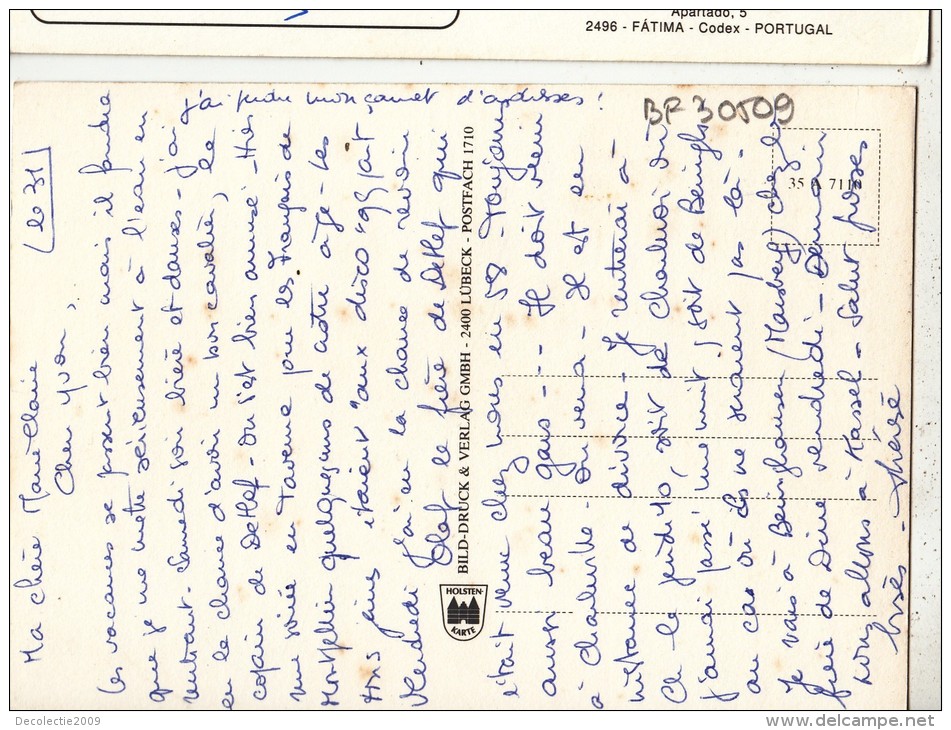 Apartado, 5
2496 - FÁTIMA - Codex - PORTUGAL
BF 30509
35 A 7110
j'ai perdu mon carnet d'adresses !
(le 31)
Ma chère Marie-Claire
Cher Yvon,
les vacances se passent bien mais il faudra
que je me mette sérieusement à l'eau en
rentrant. Samedi soir bière et danses - J'ai
eu la chance d'avoir un bon cavalier, le
copain de Detlef - On s'est bien amusé - Hier
une soirée en Taverne pour les Français de
Montpellier quelques gens de notre âge - les
très jeunes étaient "aux disco"
Vendredi j'ai eu la chance de revoir
Olaf le frère de Detlef qui
était venu chez nous en 58 - Toujours
aussi beau gars --- Il doit venir
à Charleville - On verra - Il est en
instance de divorce - Je rentrerai à
Ch. le jeudi 10 soit de Charleroi où
j'aurai passé une nuit / soit de
au cas où ils ne seraient pas là -
Je vais à chez le
frère de vendredi - Demain
nous allons à Kassel - Salut grosses
bises -
BILD-DRUCK & VERLAG GMBH - 2400 LÜBECK - POSTFACH 1710
HOLSTEN-
KARTE
Decolectie2009